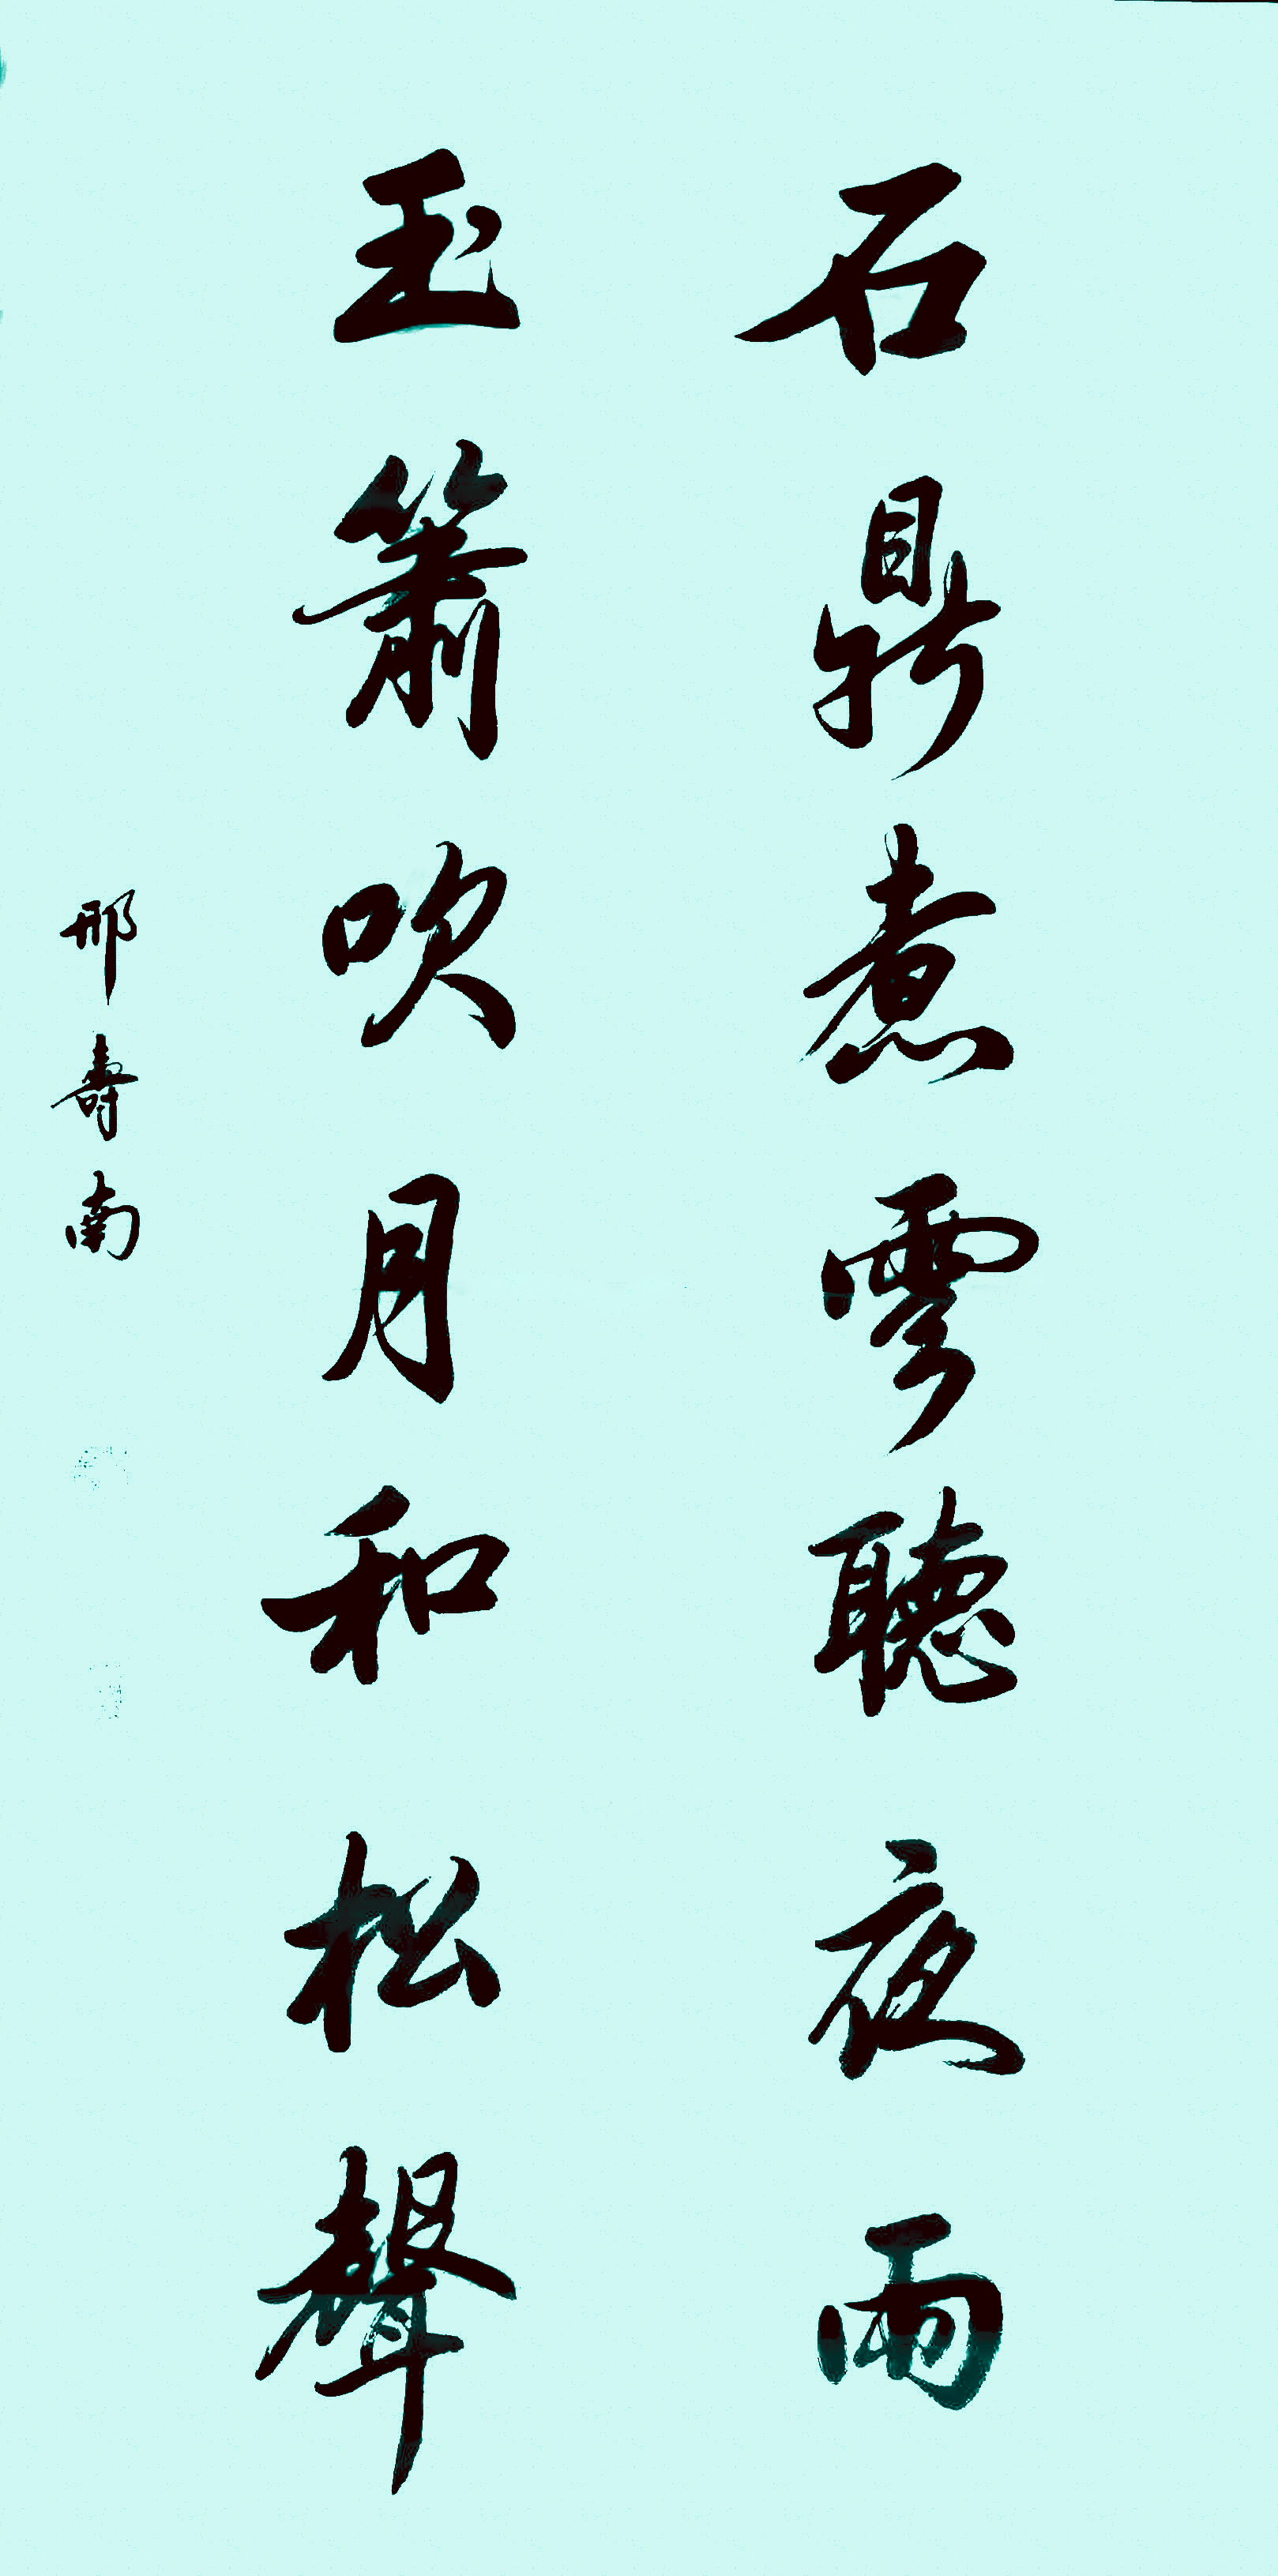 石鼎煮雲聽夜雨
玉簫吹月和松聲
邢壽南